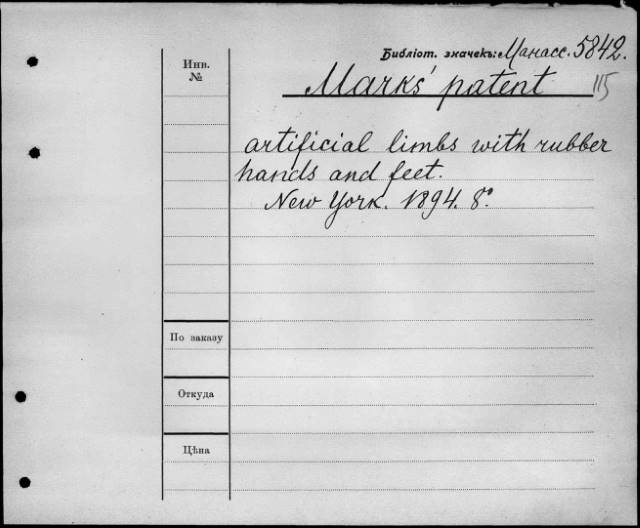 Библіот. значекъ: Манасс. 5842.
Инв.
№
Marks' patent 115
artificial limbs with rubber
hands and feet.
New York. 1894. 8°.
По заказу
Откуда
Цѣна